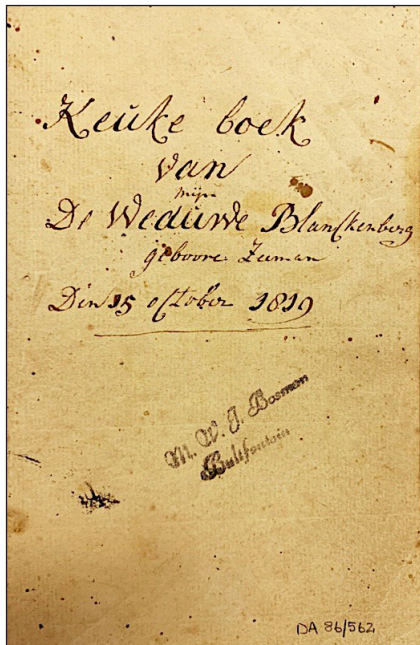 Keuke boek
van
mijn
De Weduwe Blanckenberg
geboore Zeeman
Den 15 october 1819
M. W. J. Bosman
Bultfontein
DA 86/562